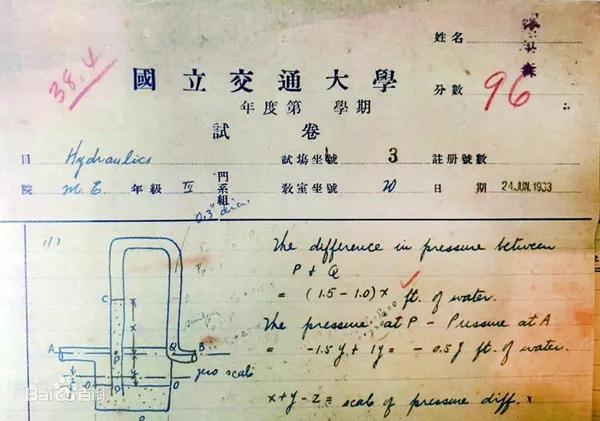 姓名
38.4
國立交通大學
分數 96
年度第 學期
試卷
目 Hydraulics 試場坐號 3 註册號數
院 M.E. 年級 IV 門系組 教室坐號 20 日期 24 JUN.1933
0.3" dia.
(1)
The difference in pressure between
P & Q
C
= (1.5 - 1.0)x ft. of water.
x
The pressure at P - Pressure at A
A P Q B
= -1.5y + 1y = -0.5y ft. of water.
zero scale
O O
x+y-z = scale of pressure diff.
Bai 百科